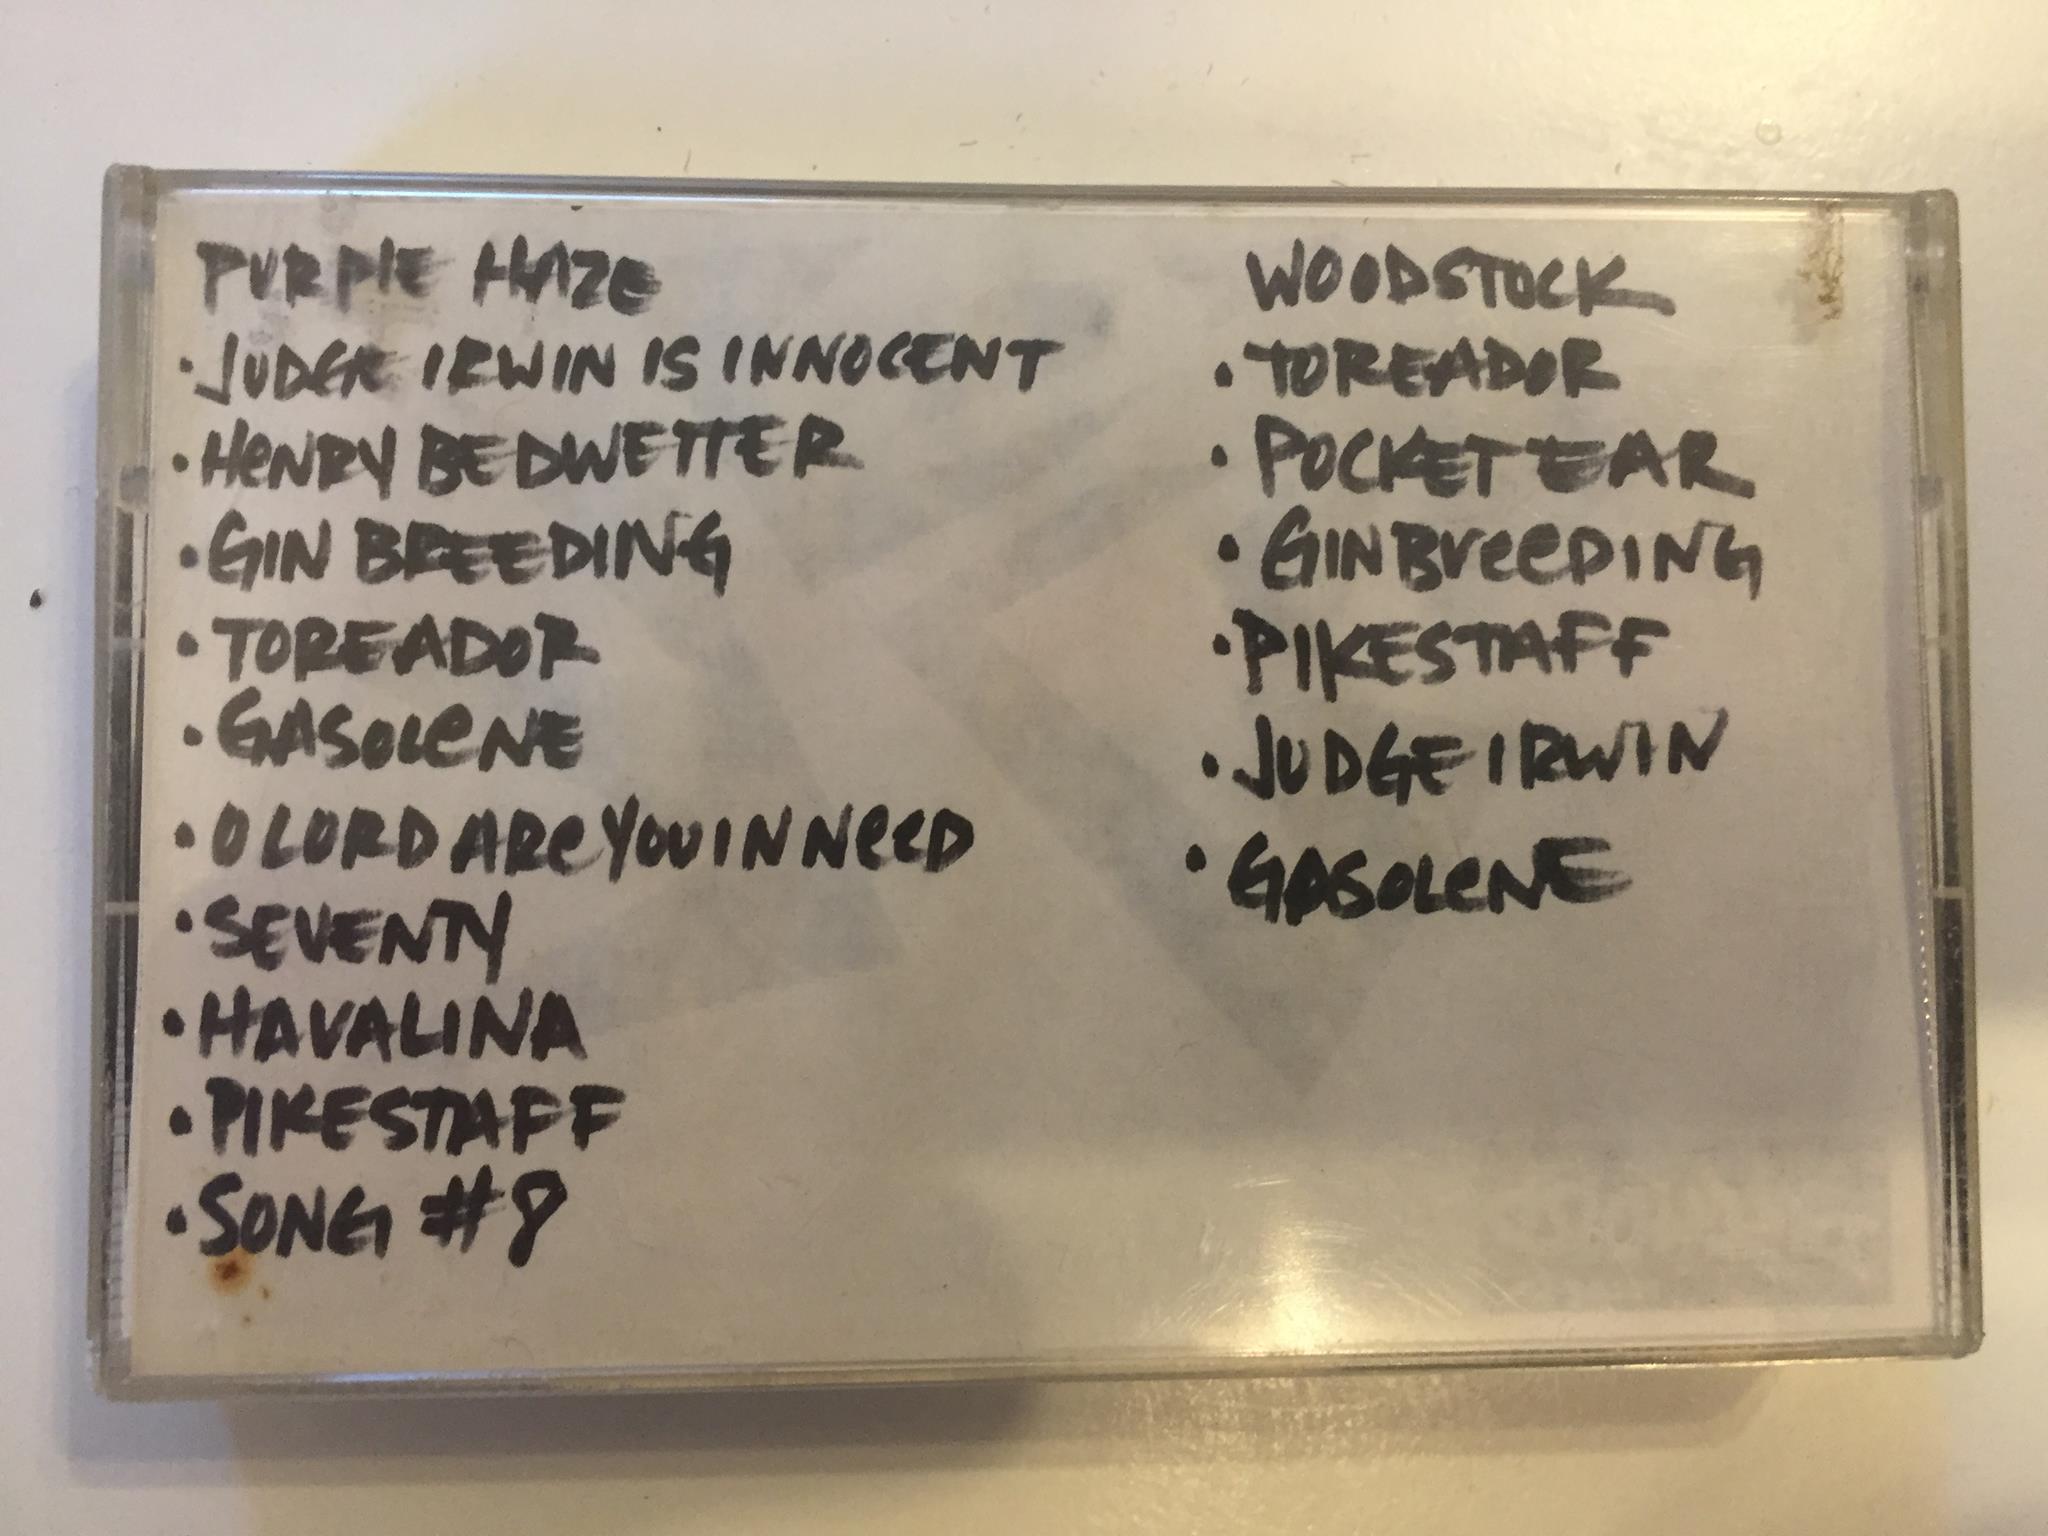 PURPlE HAZE
· JUDGE IRWIN IS INNOCENT
· HeNRY BEDWETTER
· GIN BREEDING
· TOREADOR
· GASOLeNE
· O LORD ARe YOU IN NeeD
· SEVENTY
· HAVALINA
· PIKESTAFF
· SONG #8
WOODSTOCK
· TOREADOR
· POCKET EAR
· GIN BreeDING
· PIKESTAFF
· JUDGE IRWIN
· GASOLeNE